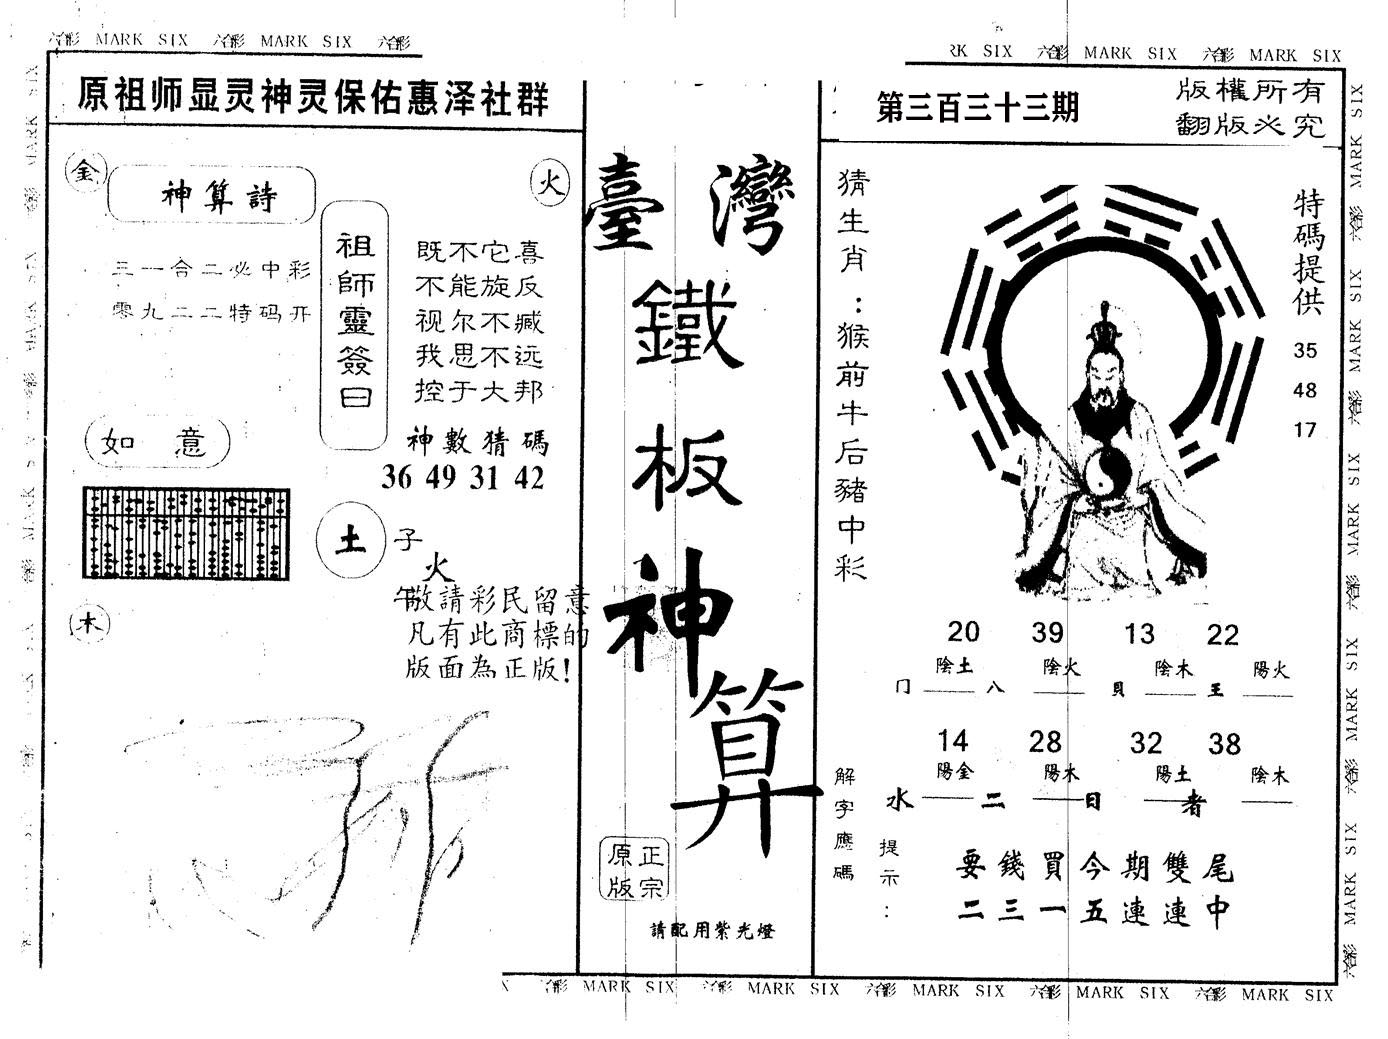 六合彩 MARK SIX 六合彩 MARK SIX 六合彩
RK SIX 六合彩 MARK SIX 六合彩 MARK SIX
原祖师显灵神灵保佑惠泽社群
金
火
神算詩
三一合二必中彩
零九二二特码开
祖師靈簽曰
既不它喜
不能旋反
视尔不臧
我思不远
控于大邦
神數猜碼
36 49 31 42
如意
土
子
火
午
木
敬請彩民留意
凡有此商標的
版面為正版!
臺灣
鐵
板
神
算
正宗
原版
請配用紫光燈
第三百三十三期
版權所有
翻版必究
猜生肖：猴前牛后豬中彩
特碼提供
35
48
17
20 39 13 22
陰土 陰火 陰木 陽火
冂 八 貝 王
14 28 32 38
陽金 陽木 陽土 陰木
水 二 日 者
解字應碼
提示：
要錢買今期雙尾
二三一五連連中
六合彩 MARK SIX 六合彩 MARK SIX 六合彩 MARK SIX 六合彩 MARK SIX 六合彩 MARK SIX